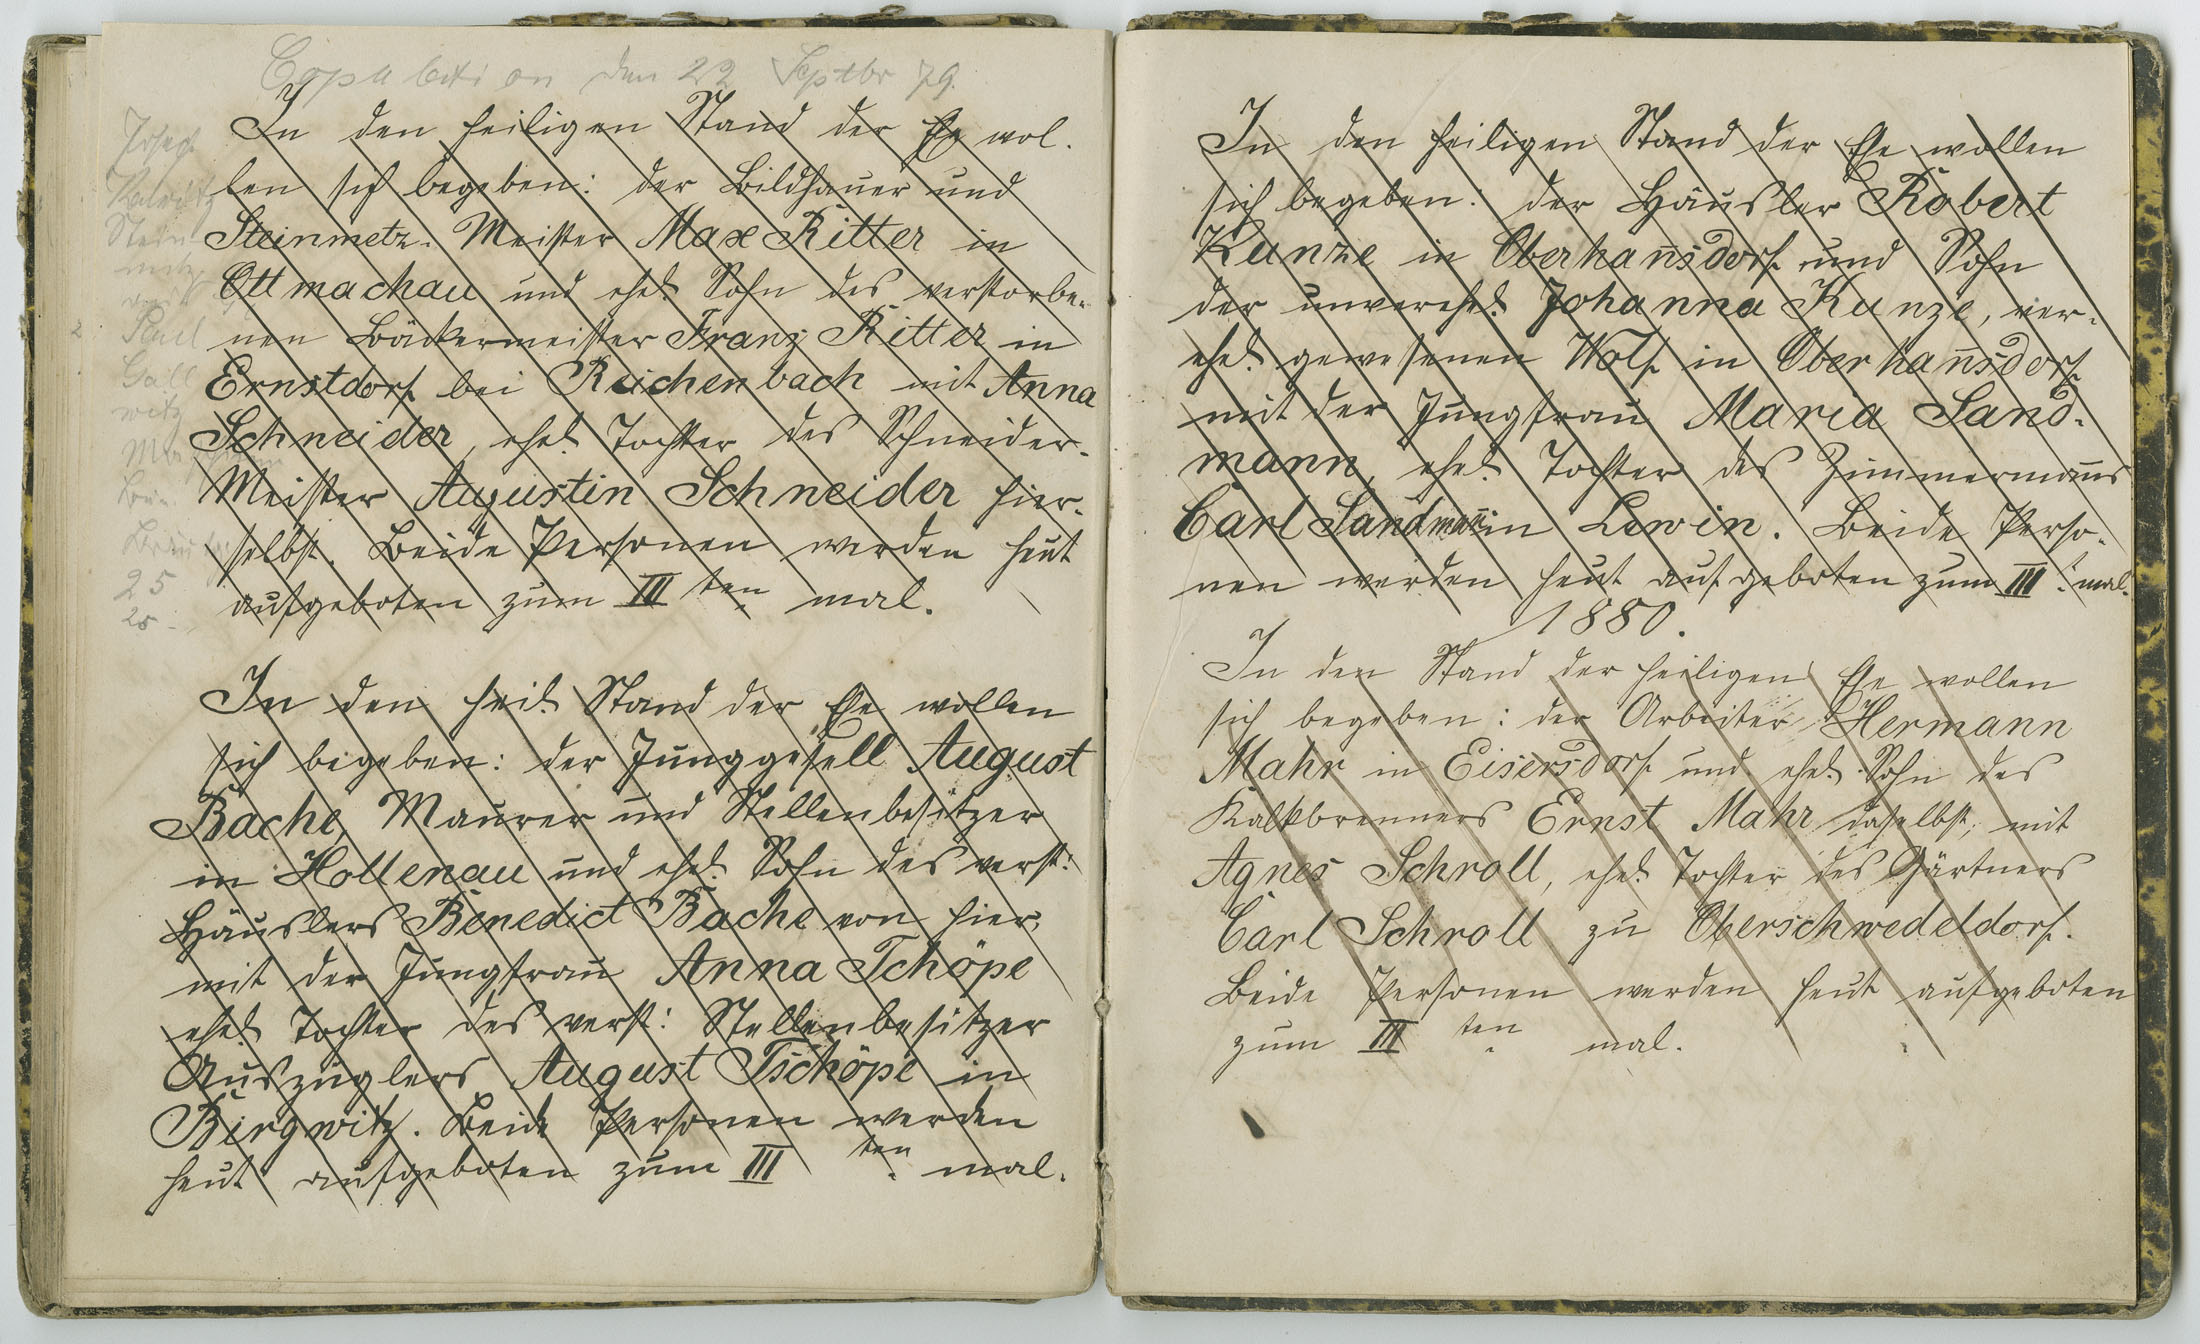 Copulation den 22 Septbr 79.
In den heiligen Stand der Ehe wol-
len sich begeben: der Bildhauer und
Steinmetz-Meister Max Ritter in
Ottmachau und ehel. Sohn des verstorbe-
nen Bäckermeister Franz Ritter in
Ernstdorf bei Reichenbach mit Anna
Schneider, ehel. Tochter des Schneider-
Meister Augustin Schneider hier-
selbst. Beide Personen werden heut
aufgeboten zum III ten mal.
Joseph
Stein-
metz
Paul
25
In den heil. Stand der Ehe wollen
sich begeben: der Junggesell August
Bache, Maurer und Stellenbesitzer
in Hollenau und ehel. Sohn des verst:
Häuslers Benedict Bache von hier,
mit der Jungfrau Anna Tschöpe
ehel. Tochter des verst: Stellenbesitzer
Auszüglers August Tschöpe in
Birgwitz. Beide Personen werden
heut aufgeboten zum III ten mal.
In den heiligen Stand der Ehe wollen
sich begeben: der Häusler Robert
Kunze in Oberhan̄sdorf und Sohn
der unverehel. Johanna Kunze, ver-
ehel. gewesenen Wolf in Oberhan̄sdorf
mit der Jungfrau Maria Sand-
mann, ehel. Tochter des Zimmerman̄s
Carl Sandman̄ in Lewin. Beide Perso-
nen werden heut aufgeboten zum III t. mal.
1880.
In den Stand der heiligen Ehe wollen
sich begeben: der Arbeiter Hermann
Mahr in Eisersdorf und ehel. Sohn des
Kalkbrenners Ernst Mahr daselbst, mit
Agnes Schroll, ehel. Tochter des Gärtners
Carl Schroll zu Oberschwedeldorf.
Beide Personen werden heut aufgeboten
zum III ten mal.